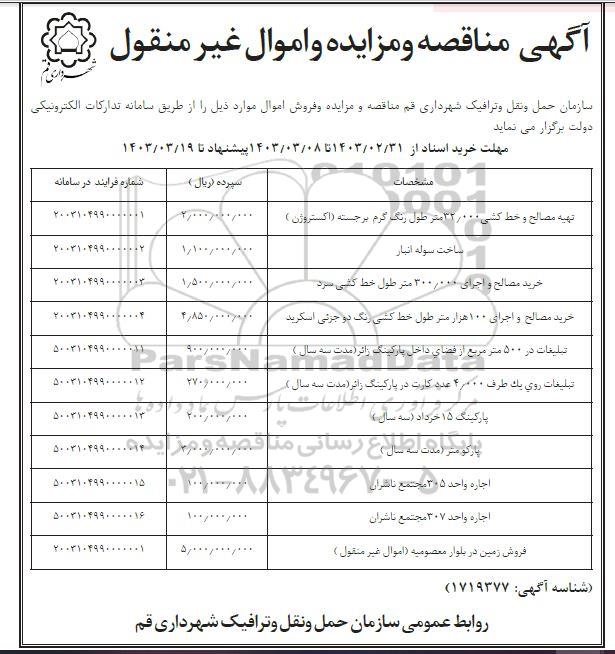 آگهی مناقصه ومزایده واموال غیر منقول
شهرداری قم
سازمان حمل ونقل وترافیک شهرداری قم مناقصه و مزایده وفروش اموال موارد ذیل را از طریق سامانه تدارکات الکترونیکی
دولت برگزار می نماید
مهلت خرید اسناد از ۱۴۰۳/۰۲/۳۱تا ۱۴۰۳/۰۳/۰۸پیشنهاد تا ۱۴۰۳/۰۳/۱۹
مشخصات سپرده (ریال) شماره فرایند در سامانه
تهیه مصالح و خط کشی۳۲٫۰۰۰متر طول رنگ گرم برجسته (اکستروژن) ۲٫۰۰۰٫۰۰۰٫۰۰۰ ۲۰۰۳۱۰۴۹۹۰۰۰۰۰۰۱
ساخت سوله انبار ۱٫۱۰۰٫۰۰۰٫۰۰۰ ۲۰۰۳۱۰۴۹۹۰۰۰۰۰۰۲
خرید مصالح و اجرای ۳۰۰٫۰۰۰ متر طول خط کشی سرد ۱٫۵۰۰٫۰۰۰٫۰۰۰ ۲۰۰۳۱۰۴۹۹۰۰۰۰۰۰۳
خرید مصالح و اجرای ۱۰۰هزار متر طول خط کشی رنگ دو جزئی اسکرید ۴٫۸۵۰٫۰۰۰٫۰۰۰ ۲۰۰۳۱۰۴۹۹۰۰۰۰۰۰۴
تبلیغات در ۵۰۰ متر مربع از فضاي داخل پارکینگ زائر(مدت سه سال) ۹۰۰٫۰۰۰٫۰۰۰ ۵۰۰۳۱۰۴۹۹۰۰۰۰۰۱۱
تبلیغات روي یك طرف ۴٫۰۰۰ عدد کارت در پارکینگ زائر(مدت سه سال) ۲۷۰٫۰۰۰٫۰۰۰ ۵۰۰۳۱۰۴۹۹۰۰۰۰۰۱۲
پارکینگ ۱۵خرداد (سه سال) ۲۰۰٫۰۰۰٫۰۰۰ ۵۰۰۳۱۰۴۹۹۰۰۰۰۰۱۳
پارکو متر (مدت سه سال) ۳٫۰۰۰٫۰۰۰٫۰۰۰ ۵۰۰۳۱۰۴۹۹۰۰۰۰۰۱۴
اجاره واحد ۳۰۵مجتمع ناشران ۱۰۰٫۰۰۰٫۰۰۰ ۵۰۰۳۱۰۴۹۹۰۰۰۰۰۱۵
اجاره واحد ۳۰۷مجتمع ناشران ۱۰۰٫۰۰۰٫۰۰۰ ۵۰۰۳۱۰۴۹۹۰۰۰۰۰۱۶
فروش زمین در بلوار معصومیه (اموال غیر منقول) ۵٫۰۰۰٫۰۰۰٫۰۰۰ ۲۰۰۳۱۰۴۹۹۰۰۰۰۰۰۱
ParsNamadData
مرکز فرآوری اطلاعات پارس نماد داده ها
پایگاه اطلاع رسانی مناقصه و مزایده
۰۲۱-۸۸۳۴۹۶۷۰-۵
(شناسه آگهی: ۱۷۱۹۳۷۷)
روابط عمومی سازمان حمل ونقل وترافیک شهرداری قم